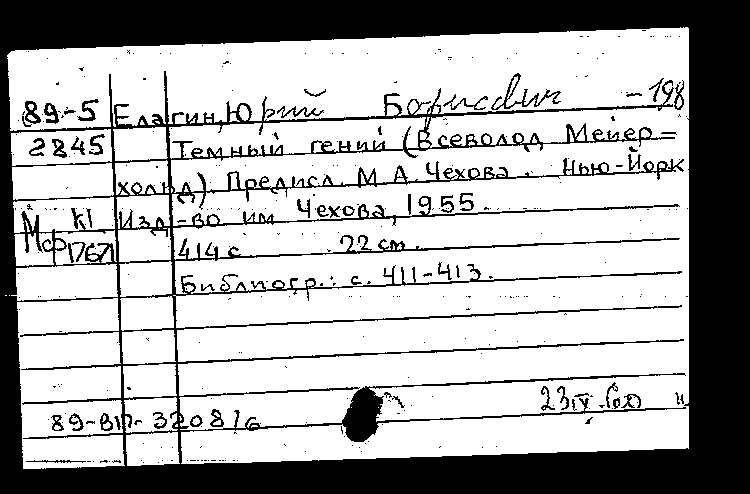 89-5 Елагин, Юрий Борисович - 198
2845 Темный гений (Всеволод Мейер=
хольд). Предисл. М. А. Чехова. Нью-Йорк
Мф К1 17671 Изд-во им Чехова, 1955.
414 с. 22 cm.
Библиогр.: с. 411-413.
89-ВП-3208/6 23 IV